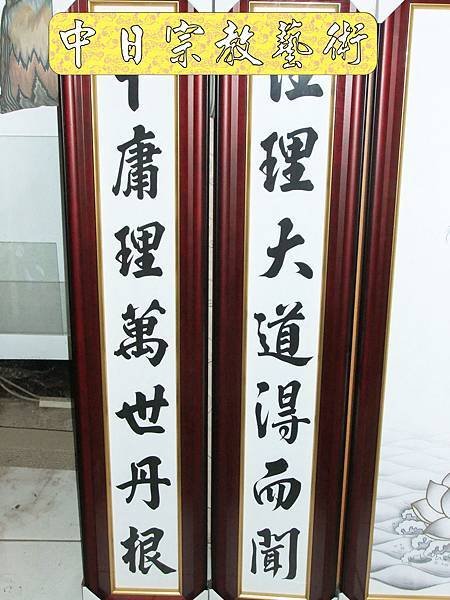 中日宗教藝術
性理大道得而聞
中庸理萬世丹根